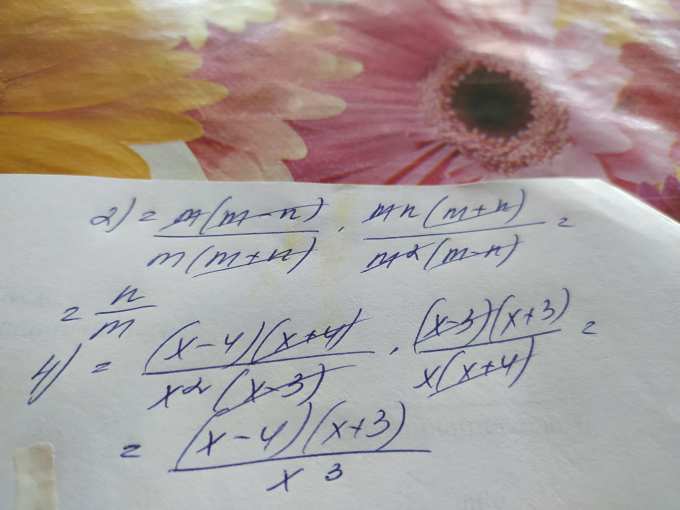 2) = m(m-n)/m(m+n) · mn(m+n)/m²(m-n) =
= n/m
4) = (x-4)(x+4)/x²(x-3) · (x-3)(x+3)/x(x+4) =
= (x-4)(x+3)/x³